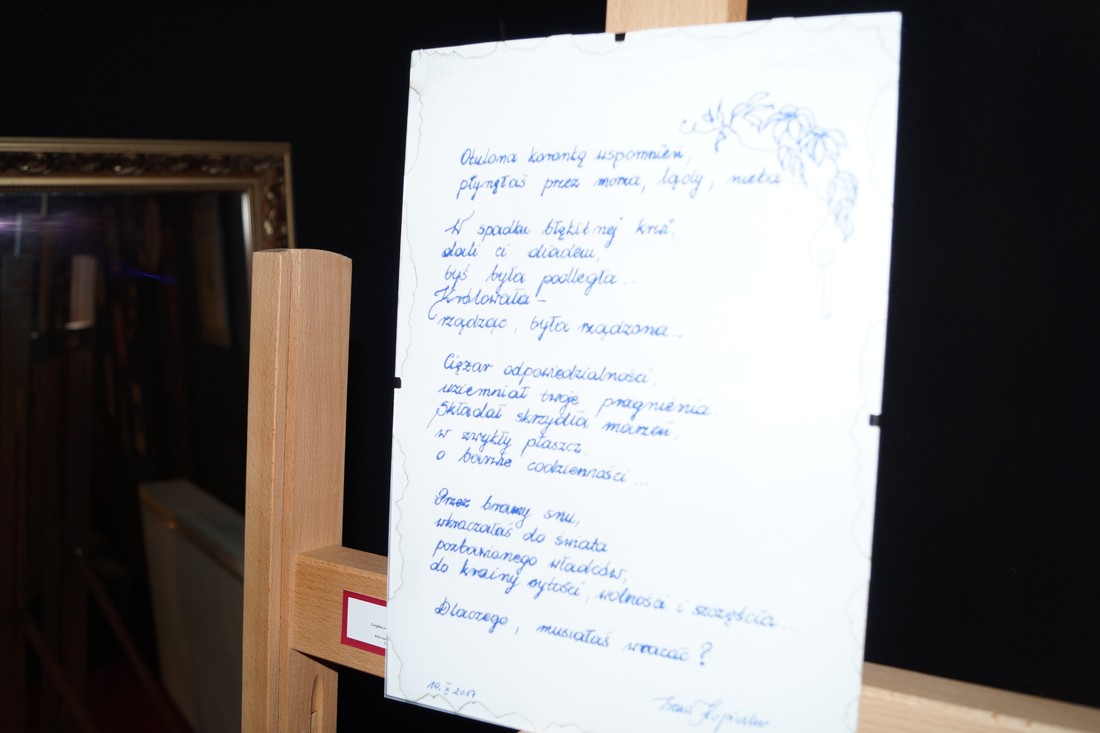 Otulona koronką wspomnień,
płynęłaś przez morza, lądy, nieba...
W spadku błękitnej krwi,
dali ci diadem,
byś była podległa...
Królowała -
rządząc, była rządzona...
Ciężar odpowiedzialności,
uziemniał twoje pragnienia.
Składał skrzydła marzeń,
w zwykły płaszcz,
o barwie codzienności...
Przez bramy snu,
wkraczałaś do świata
pozbawionego władców,
do krainy sytości, wolności i szczęścia...
Dlaczego, musiałaś wracać?
10.X.2017